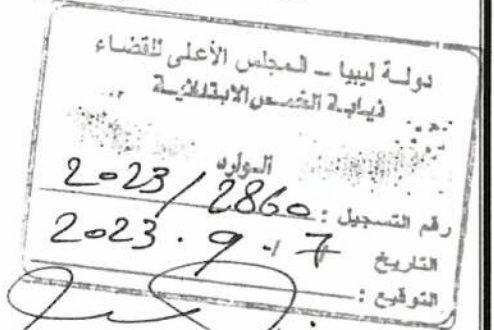 دولة ليبيا – المجلس الأعلى للقضاء
نيابة الخمس الابتدائية
الوارد
رقم التسجيل : 2023/2860
التاريخ 2023 . 9 . 7
التوقيع :